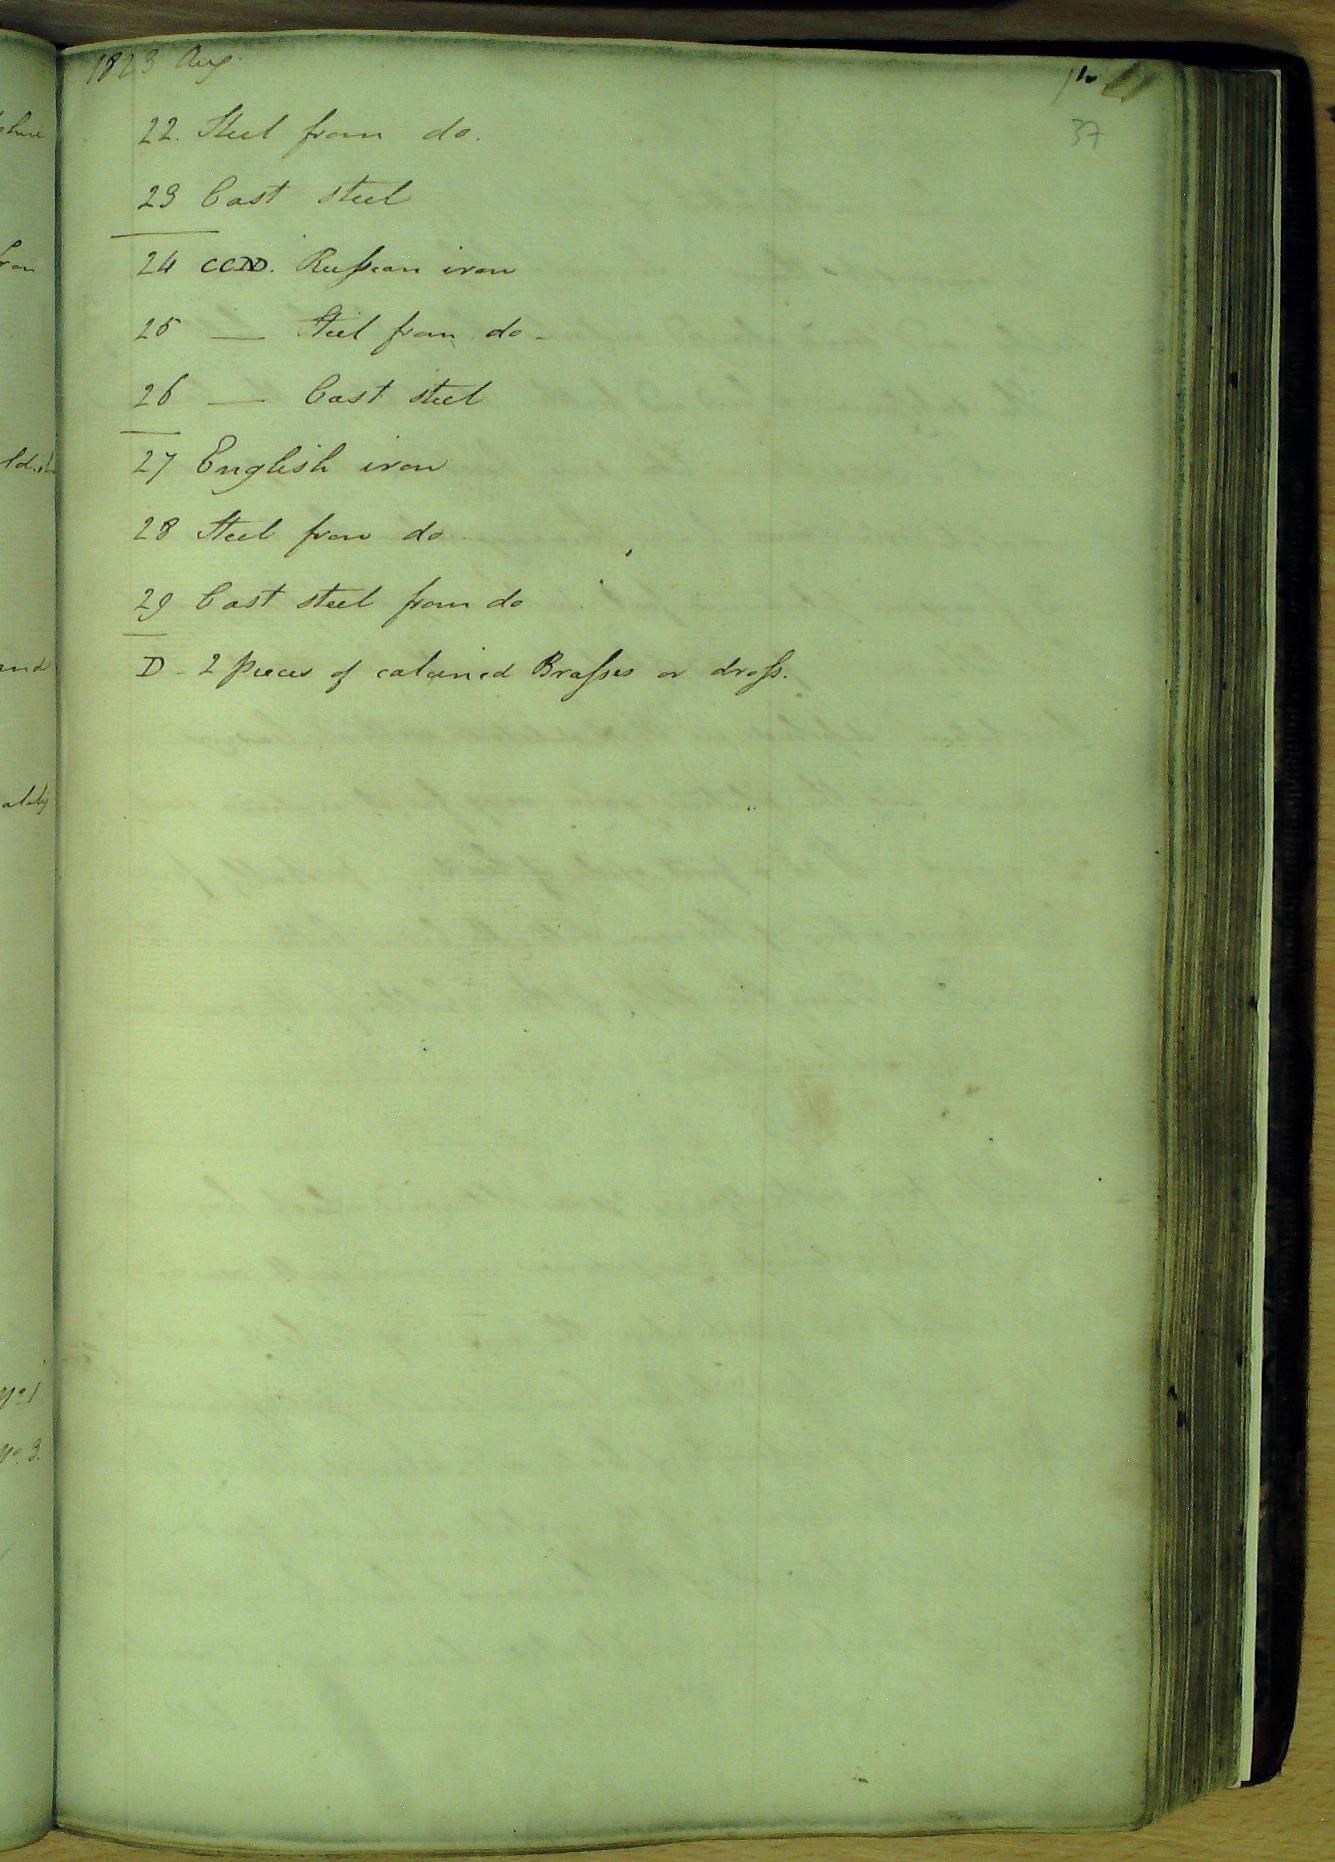 1823 Aug.
37
22. Steel from do.
23 Cast steel
24 CCND. Russian iron
25 — Steel from do -
26 — Cast steel
27 English iron
28 Steel from do
29 Cast steel from do
D - 2 pieces of calcined Brasses or dross.
and
No 1
No. 3.